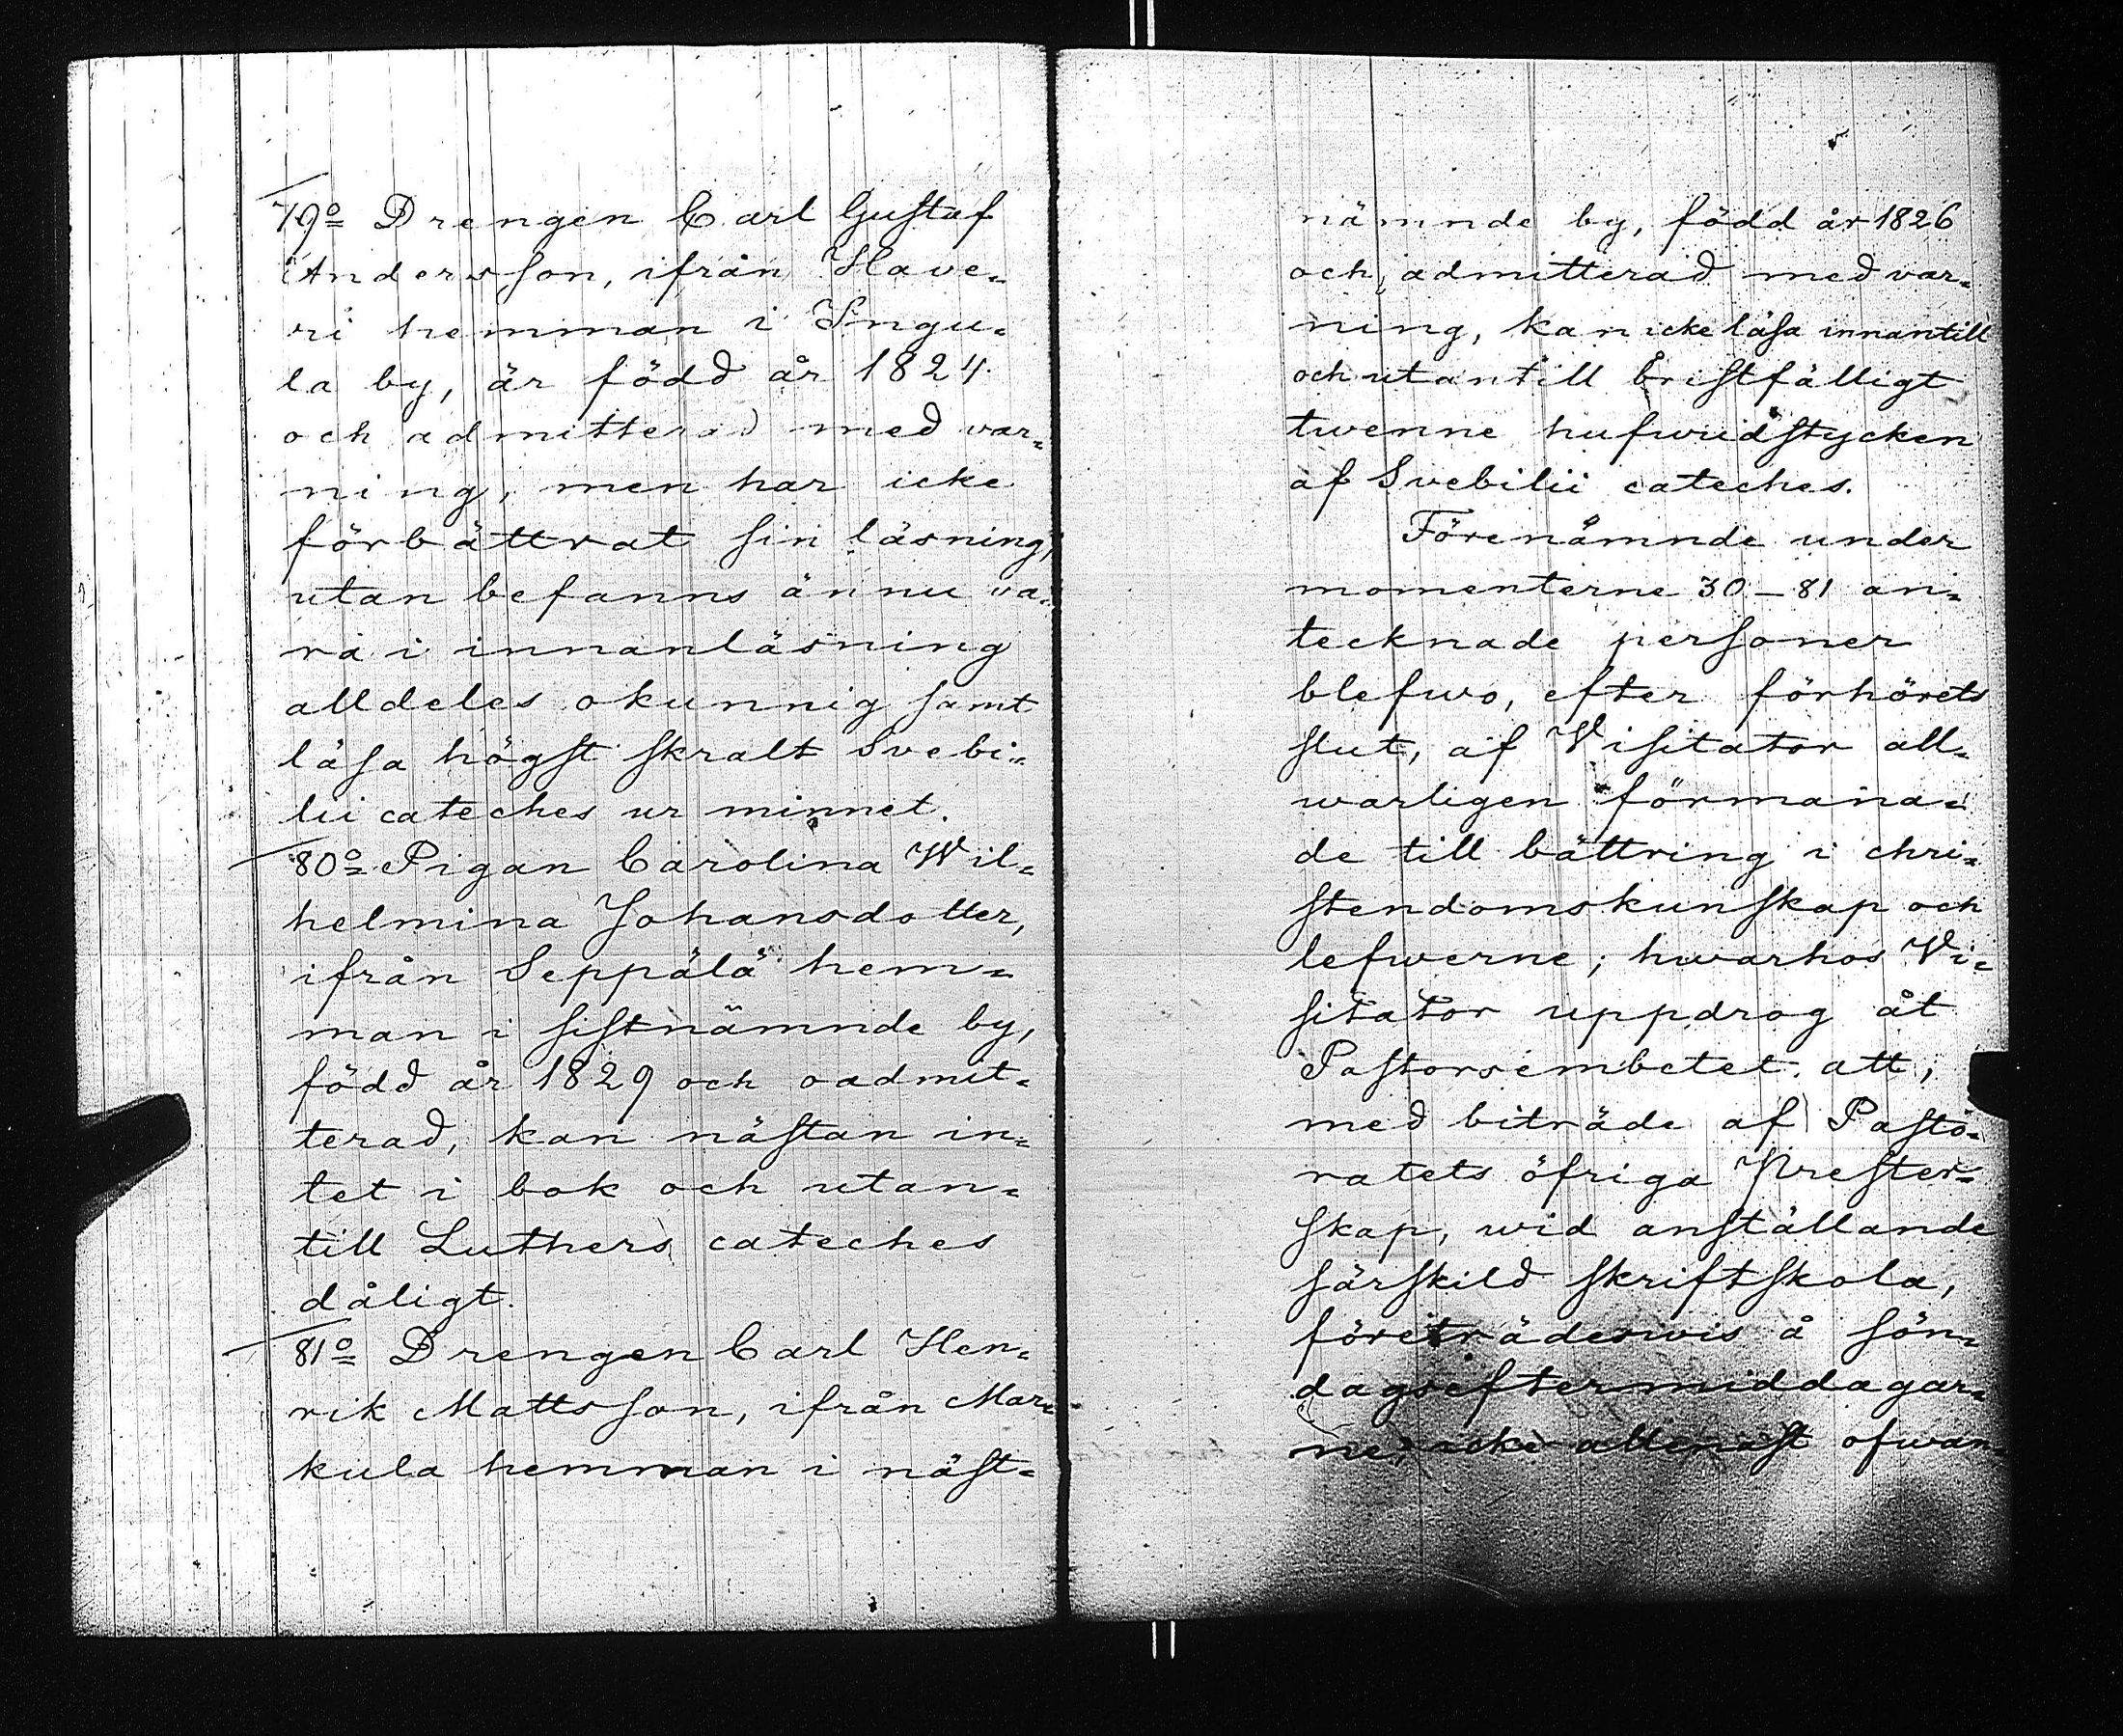 79o Drengen Carl Gustaf
Andersson, ifrån Have=
ri hemman i Ingu=
la by, är född år 1824
och admitterad med var=
ning, men har icke
förbättrat sin läsning,
utan befanns ännu va=
ra i innanläsning
alldeles okunnig samt
läsa högst skralt Svebi=
lii cateches ur minnet.
80o Pigan Carolina Wil=
helmina Johansdotter,
ifrån Seppälä hem=
man i sistnämnde by,
född år 1829 och oadmit=
terad, kan nästan in=
tet i bok och utan=
till Luthers cateches
dåligt.
81o Drengen Carl Hen=
rik Mattsson, ifrån Mar=
kula hemman i näst=
nämnde by, född år 1826
och admitterad med var=
ning, kan icke läsa innantill
och utantill bristfälligt
twenne hufwudstycken
af Svebilii cateches.
Förenämnde under
momenterne 30-81 an=
tecknade personer
blefwo, efter förhörets
slut, af Visitator all=
warligen förmana=
de till bättring i chri=
stendomskunskap och
lefwerne; hwarhos Vi=
sitator uppdrog åt
Pastorsembetet att,
med biträde af Pasto=
ratets öfriga Prester=
skap, wid anställande
särskild skriftskola,
företrädeswis å sön=
dagseftermiddagar=
ne, icke allenast ofwan=